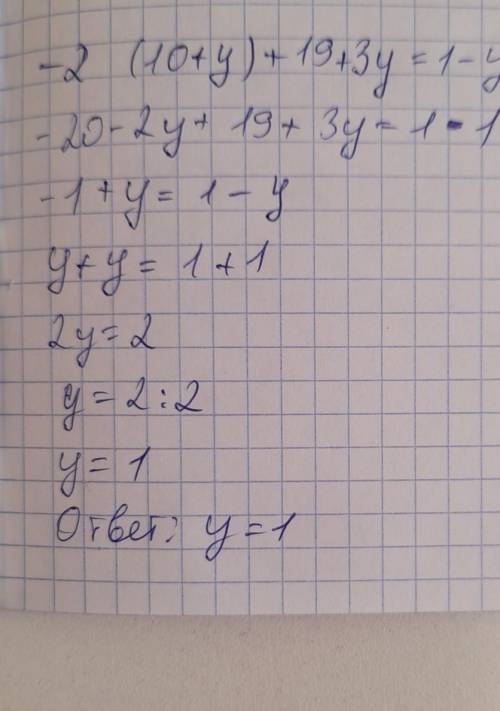 -2 (10+y)+19+3y=1-y
-20-2y+19+3y=1-1
-1+y=1-y
y+y=1+1
2y=2
y=2:2
y=1
Ответ: y=1